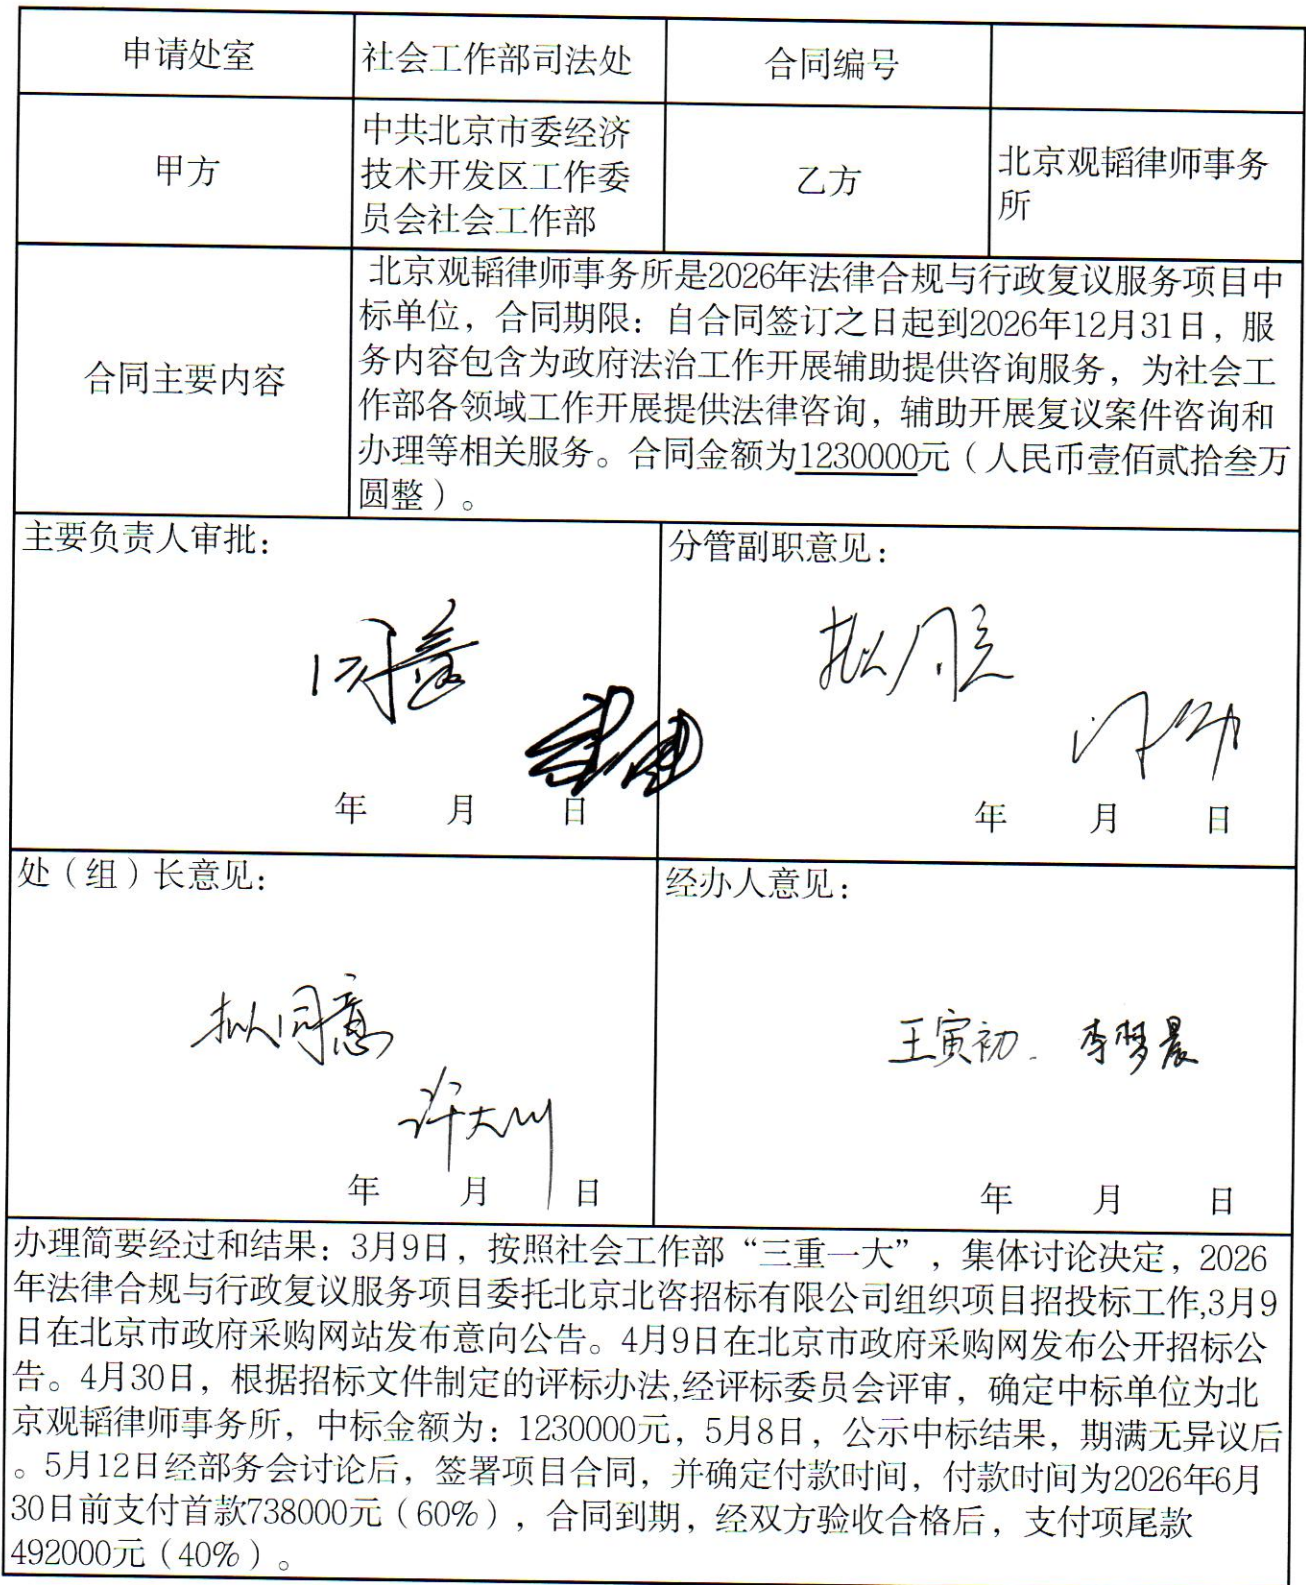 申请处室
社会工作部司法处
合同编号
甲方
中共北京市委经济
技术开发区工作委
员会社会工作部
乙方
北京观韬律师事务
所
合同主要内容
北京观韬律师事务所是2026年法律合规与行政复议服务项目中
标单位，合同期限：自合同签订之日起到2026年12月31日，服
务内容包含为政府法治工作开展辅助提供咨询服务，为社会工
作部各领域工作开展提供法律咨询，辅助开展复议案件咨询和
办理等相关服务。合同金额为1230000元（人民币壹佰贰拾叁万
圆整）。
主要负责人审批：
同意
年 月 日
分管副职意见：
拟同意
年 月 日
处（组）长意见：
拟同意
许大川
年 月 日
经办人意见：
王寅初. 李梦晨
年 月 日
办理简要经过和结果：3月9日，按照社会工作部“三重一大”，集体讨论决定，2026
年法律合规与行政复议服务项目委托北京北咨招标有限公司组织项目招投标工作,3月9
日在北京市政府采购网站发布意向公告。4月9日在北京市政府采购网发布公开招标公
告。4月30日，根据招标文件制定的评标办法,经评标委员会评审，确定中标单位为北
京观韬律师事务所，中标金额为：1230000元，5月8日，公示中标结果，期满无异议后
。5月12日经部务会讨论后，签署项目合同，并确定付款时间，付款时间为2026年6月
30日前支付首款738000元（60%），合同到期，经双方验收合格后，支付项尾款
492000元（40%）。